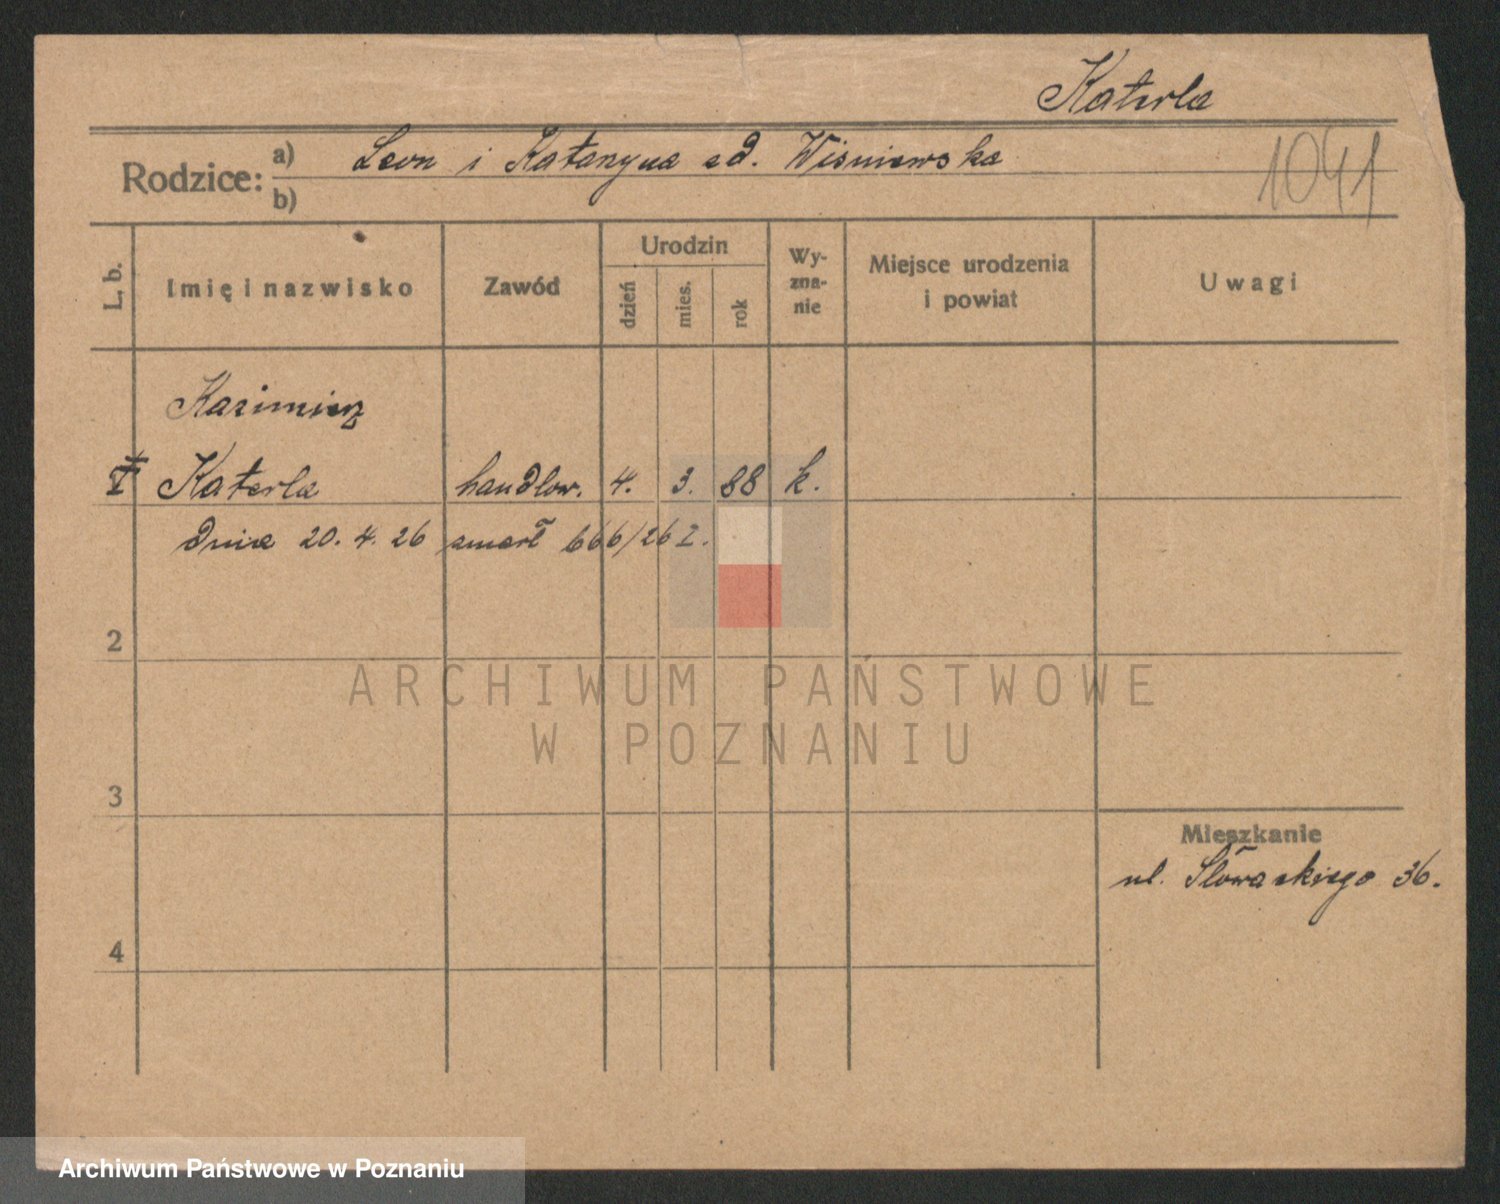 Katerla
Rodzice: a) Leon i Katarzyna zd. Wiśniewska
b)
1041
L. b. Imię i nazwisko Zawód Urodzin dzień mies. rok Wy-zna-nie Miejsce urodzenia i powiat Uwagi
Kazimierz
Katerla handlow. 4. 3. 88 k.
dnia 20. 4. 26 zmarł 666/26 I.
2
3
4
Mieszkanie
ul. Słowackiego 36.
ARCHIWUM PAŃSTWOWE
W POZNANIU
Archiwum Państwowe w Poznaniu